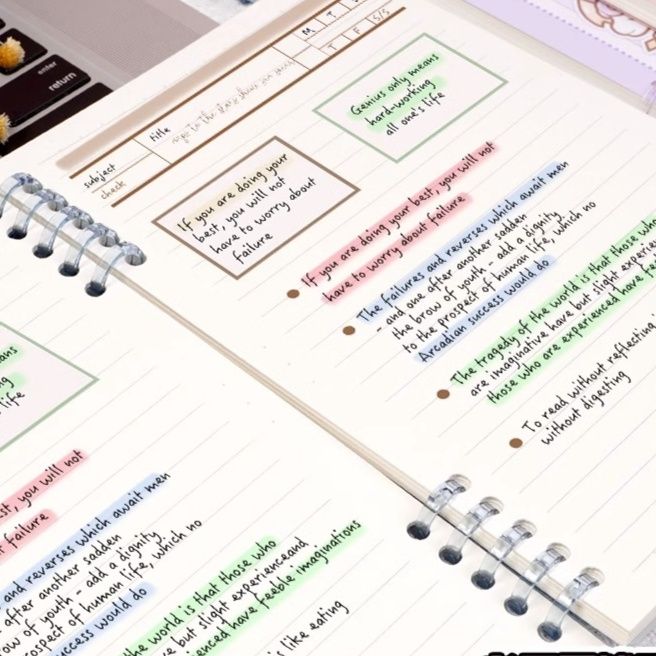 enter
return
M T
T F S/S
title
subject
check
Genius only means
hard-working
all one's life
If you are doing your
best, you will not
have to worry about
failure
If you are doing your best, you will not
have to worry about failure
The failures and reverses which await men
- and one after another sadden
the brow of youth - add a dignity
to the prospect of human life, which no
Arcadian success would do
The tragedy of the world is that those who
are imaginative have but slight
those who are experienced have
To read without reflecting,
without digesting
life
st, you will not
failure
and reverses which await men
after another sadden
ow of youth - add a dignity.
ospect of human life, which no
uccess would do
the world is that those who
ve but slight experienceand
ienced have feeble imaginations
is like eating